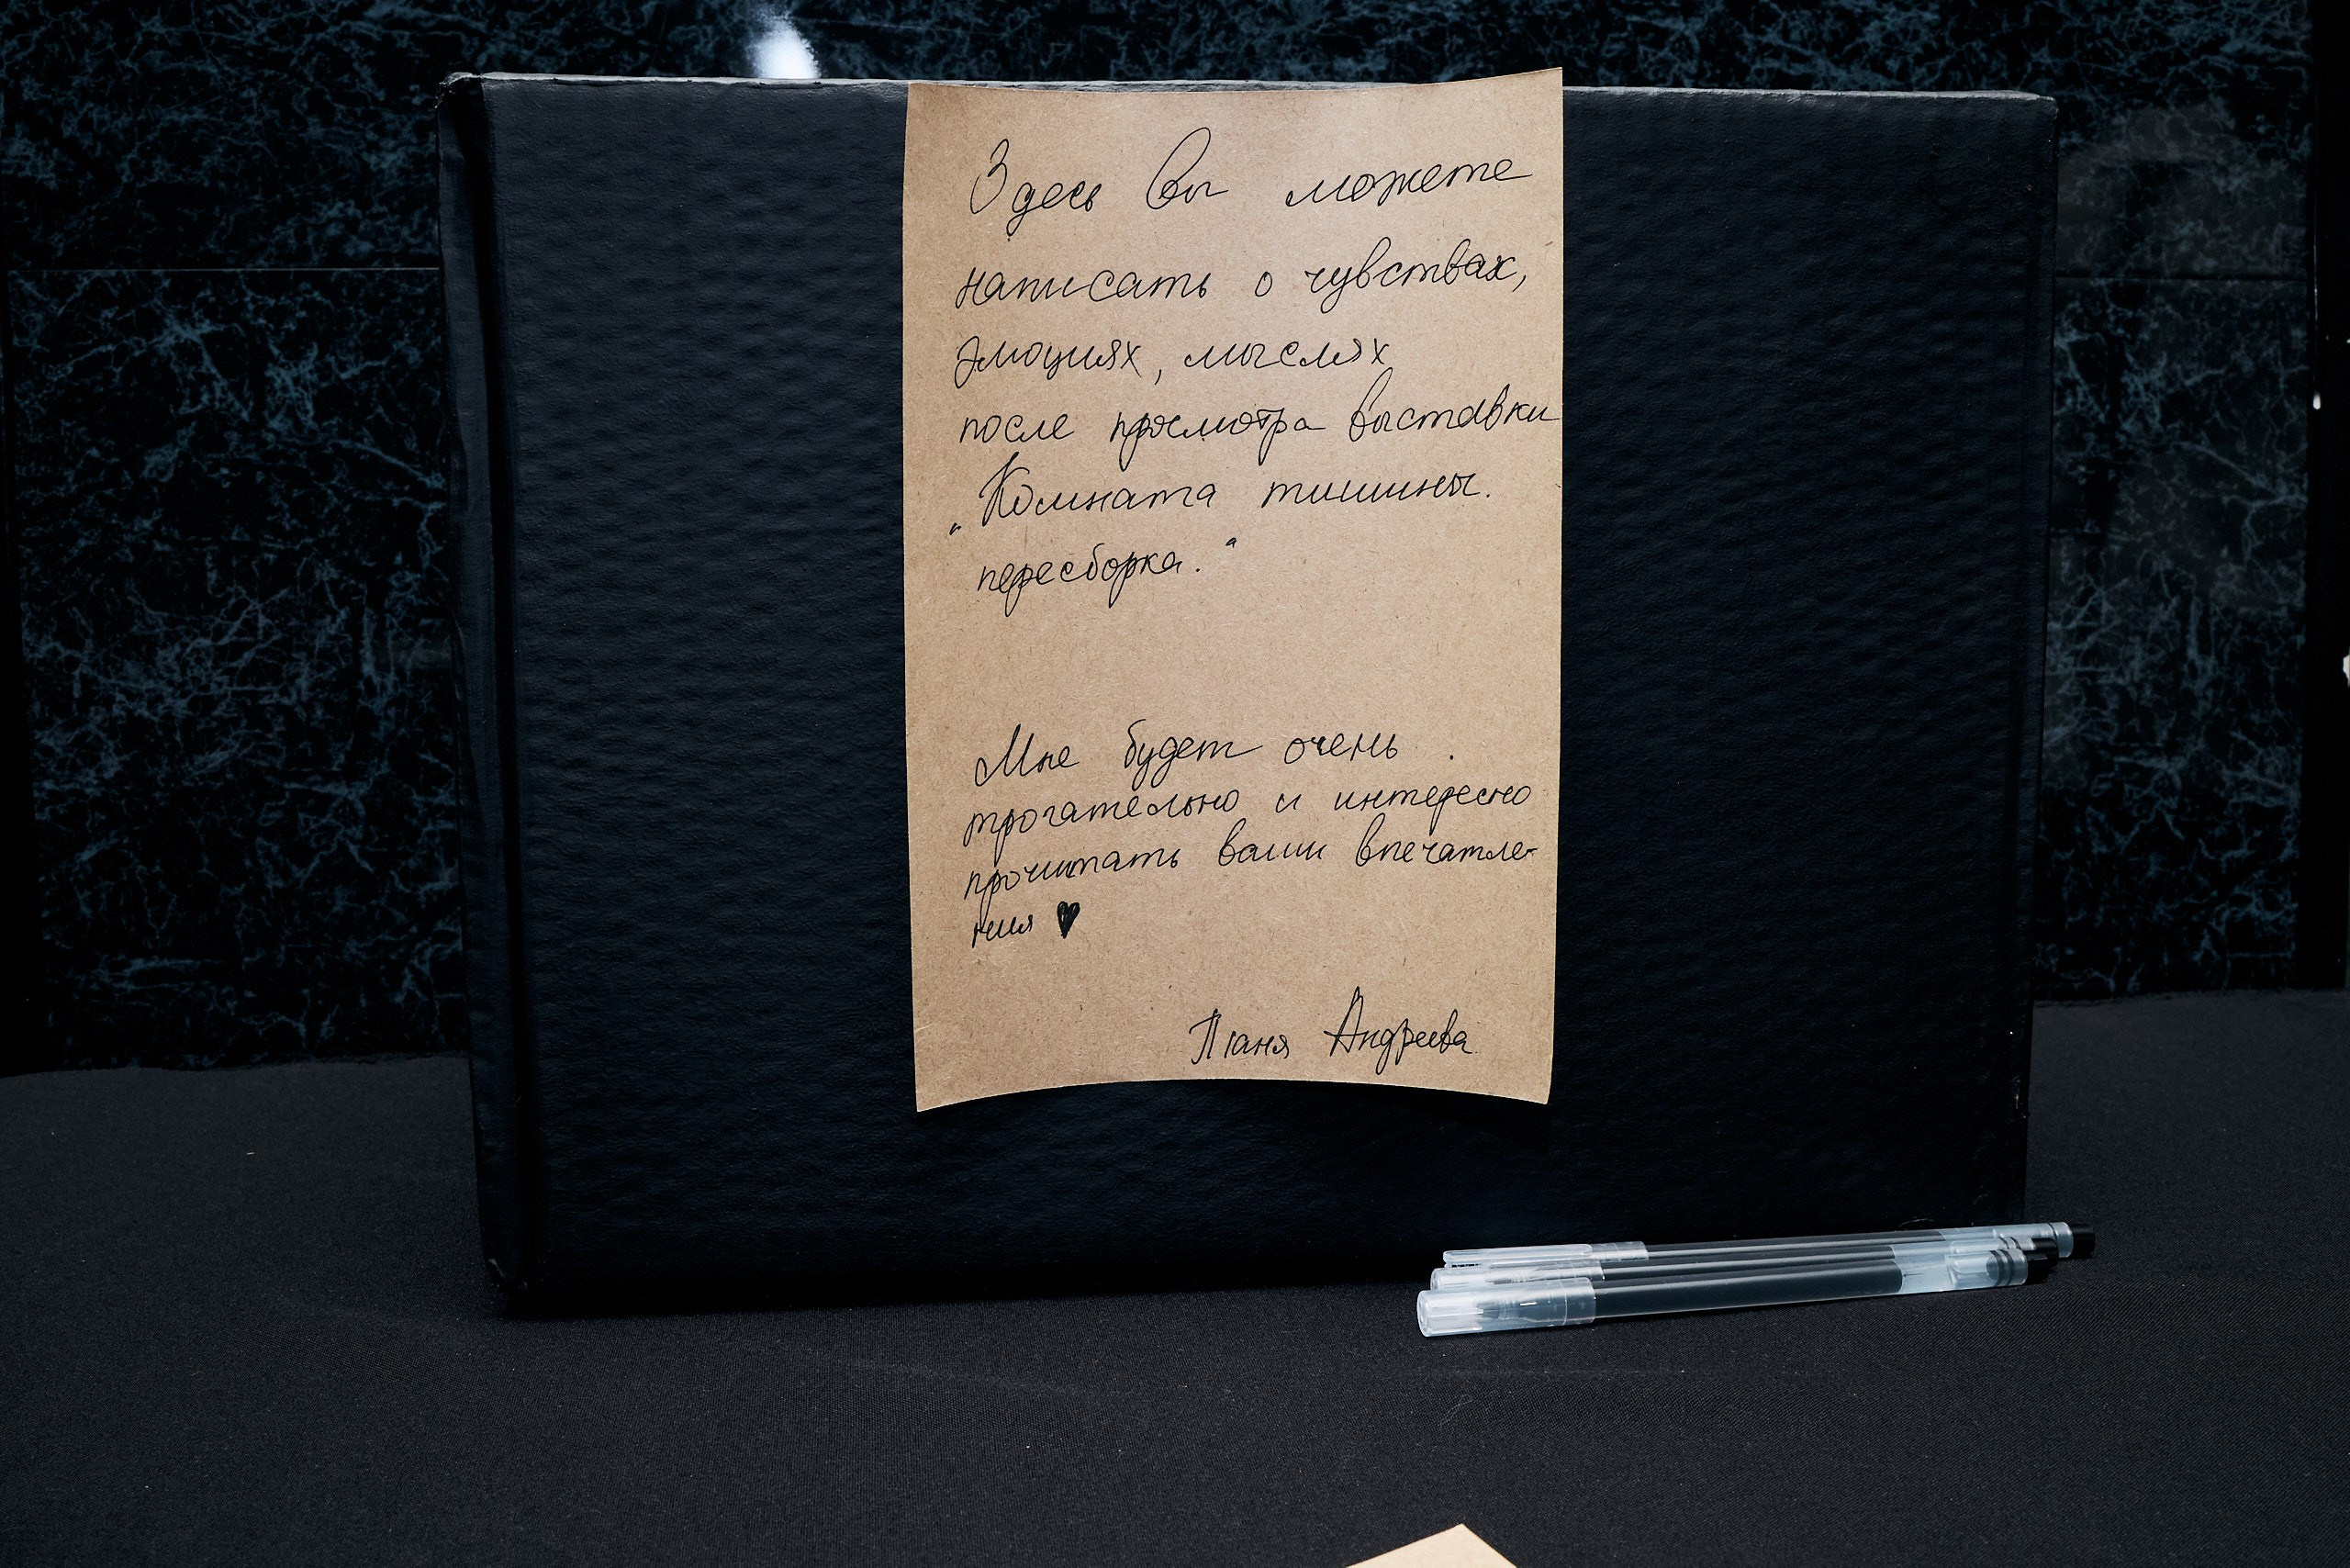 Здесь Вы можете
написать о чувствах,
эмоциях, мыслях
после просмотра выставки
„Комната тишины.
пересборка.“
Мне будет очень
трогательно и интересно
прочитать ваши впечатле-
ния ♥
Таня Андреева